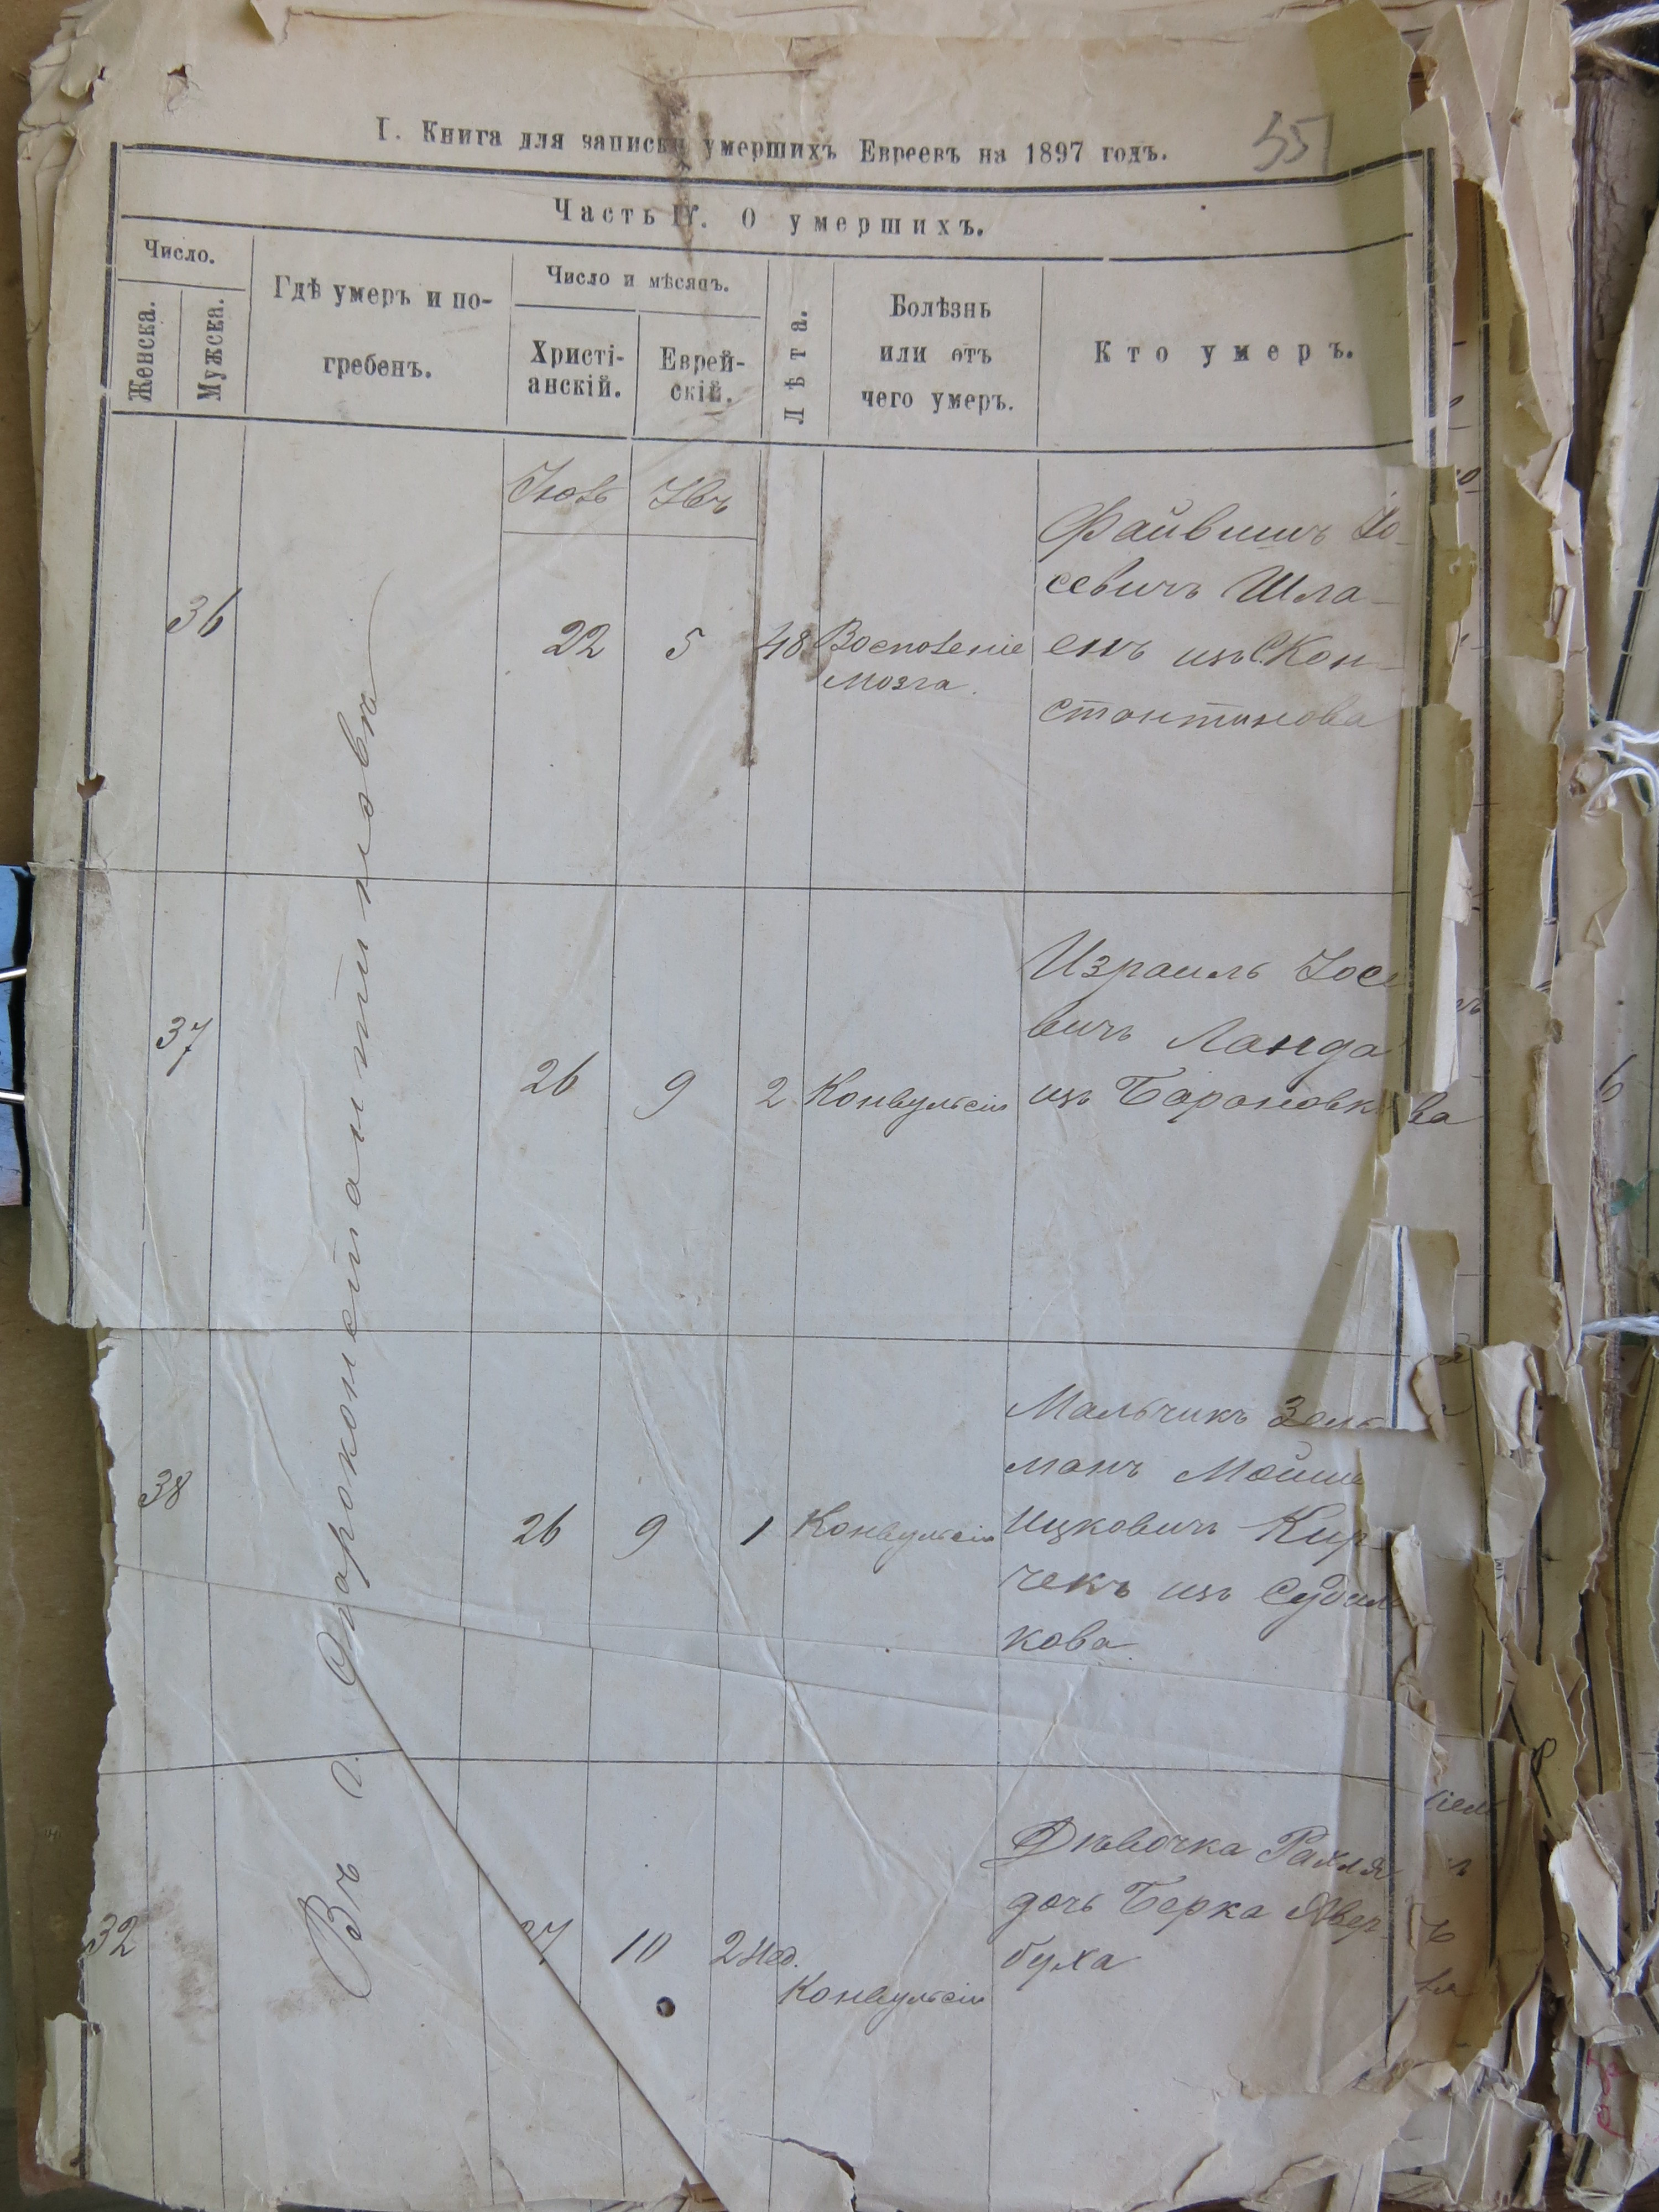 I. Книга для записки умершихъ Евреевъ на 1897 годъ.
55
Часть IV. О умершихъ.
Число.
Женска.
Мужска.
Гдѣ умеръ и по-
гребенъ.
Число и мѣсяцъ.
Христі-
анскій.
Еврей-
скій.
Лѣта.
Болѣзнь
или отъ
чего умеръ.
Кто умеръ.
Въ г. Староконстантиновѣ
36
22
5
48
Воспаленіе
мозга.
Файвишъ Іо-
севичъ Шла-
енъ изъ С.Кон-
стантинова
37
26
9
2
Конвульсіи
Израиль Іосе
вичъ Ландa
изъ Барановк
38
26
9
1
Конвульсіи
Мальчикъ Золь
манъ Мойше
Ицковичъ Кир-
чекъ изъ Судил
кова.
32
27
10
2 нед.
Конвульсіи
Дѣвочка Рахля
дочь Берка Авер-
буха